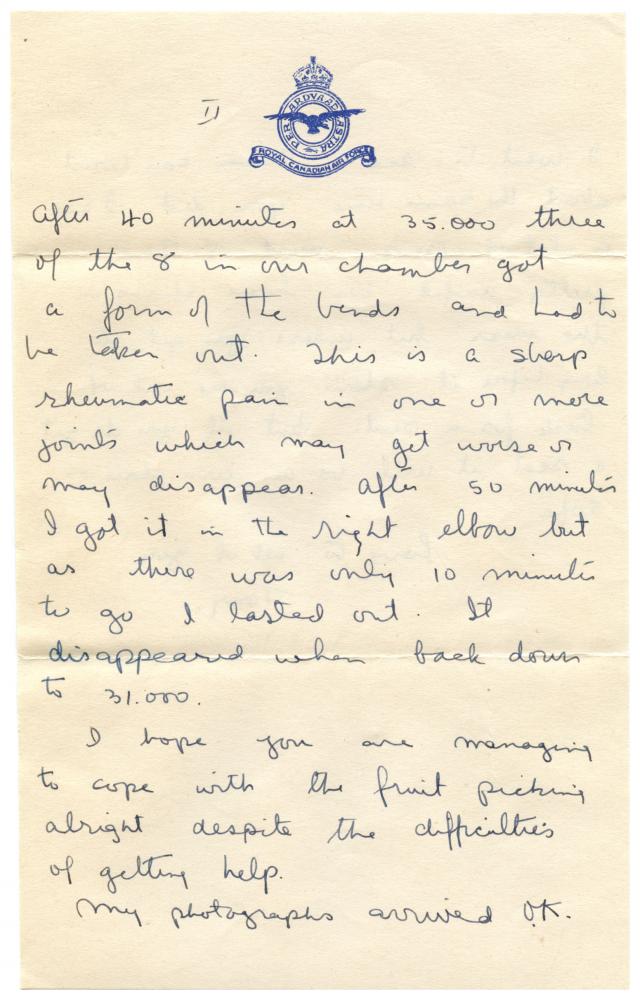 II
PER ARDVA AD ASTRA
ROYAL CANADIAN AIR FORCE
After 40 minutes at 35.000 three
of the 8 in our chamber got
a form of the bends and had to
be taken out. This is a sharp
rheumatic pain in one or more
joints which may get worse or
may disappear. After 50 minutes
I got it in the right elbow but
as there was only 10 minutes
to go I lasted out. It
disappeared when back down
to 31.000.
I hope you are managing
to cope with the fruit picking
alright despite the difficulties
of getting help.
My photographs arrived O.K.